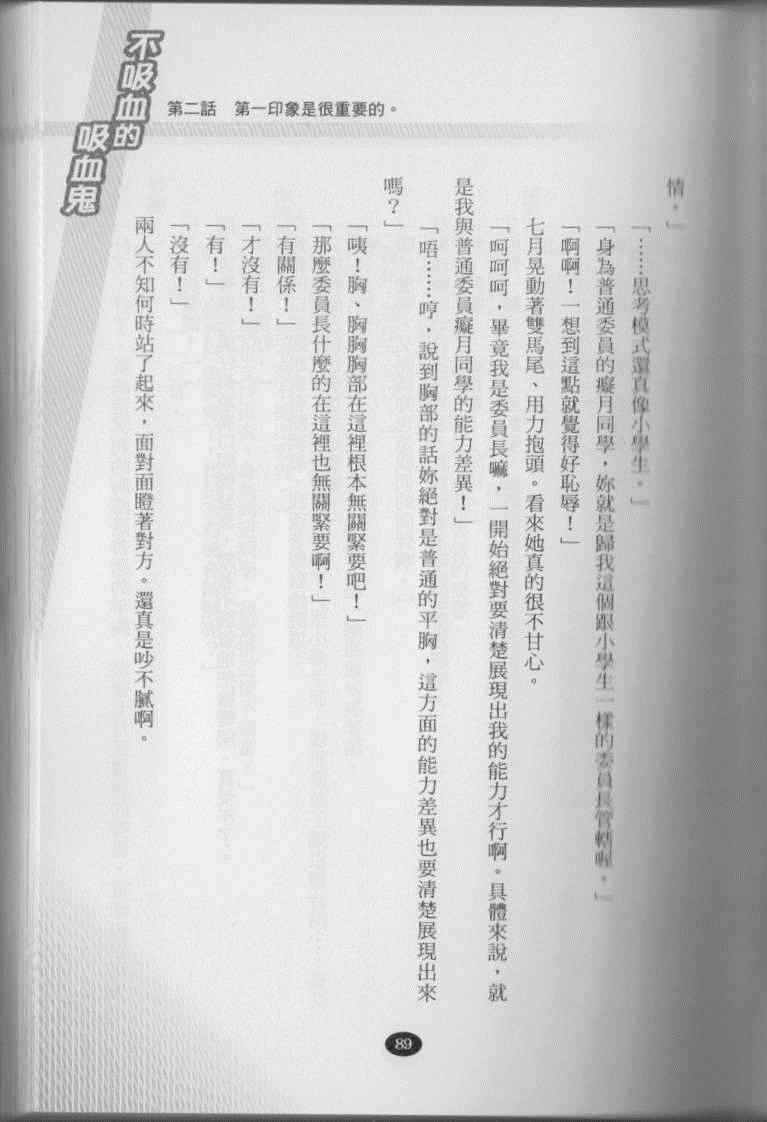 不吸血的
吸血鬼
第二話　第一印象是很重要的。
情。」
「……思考模式還真像小學生。」
「身為普通委員的癡月同學，妳就是歸我這個跟小學生一樣的委員長管轄喔。」
「啊啊！一想到這點就覺得好恥辱！」
七月晃動著雙馬尾、用力抱頭。看來她真的很不甘心。
「呵呵呵，畢竟我是委員長嘛，一開始絕對要清楚展現出我的能力才行啊。具體來說，就
是我與普通委員癡月同學的能力差異！」
「唔……哼，說到胸部的話妳絕對是普通的平胸，這方面的能力差異也要清楚展現出來
嗎？」
「咦！胸、胸胸胸部在這裡根本無關緊要吧！」
「那麼委員長什麼的在這裡也無關緊要啊！」
「有關係！」
「才沒有！」
「有！」
「沒有！」
兩人不知何時站了起來，面對面瞪著對方。還真是吵不膩啊。
89